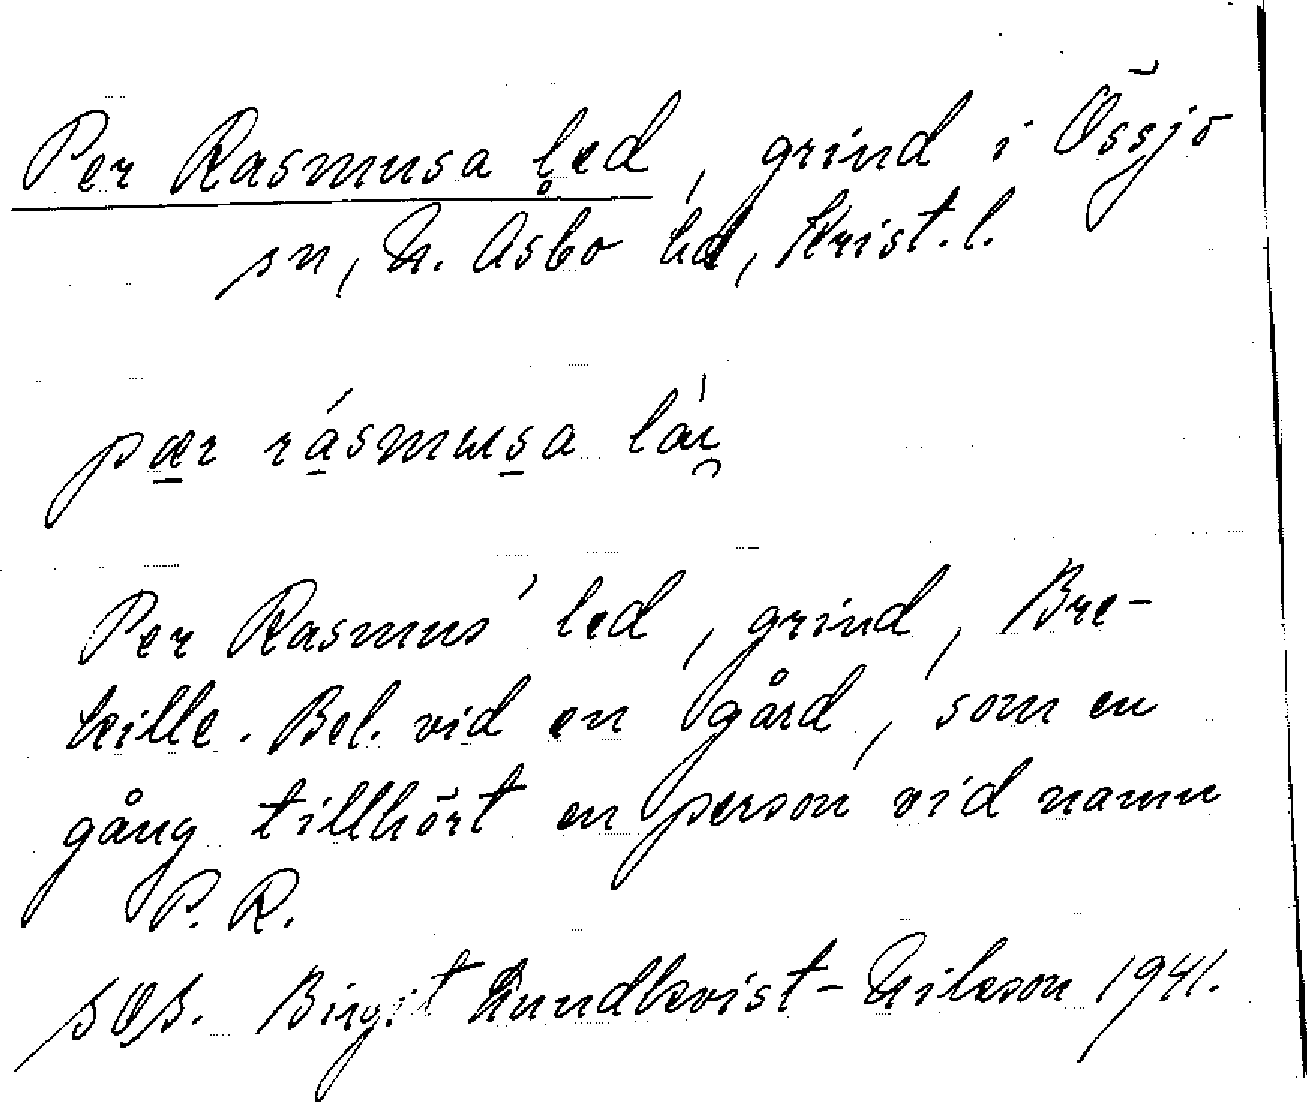 Per Rasmusa led, grind i Össjö
sn, N. Åsbo hd, Krist. l.
pær rásmusa
Per Rasmus' led, grind, Bre-
kille. Bel. vid en gård, som en
gång tillhört en person vid namn
P. R.
Birgit Lundkvist-Nilsson 1941.